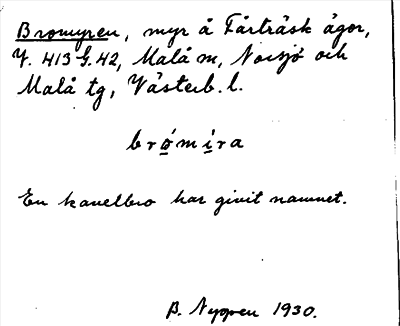 Bromyren, myr å Fårträsk ägor,
V. 413 G. 42, Malå m, Norsjö och
Malå tg, Västerb. l.
brǿmira
En kavelbro har givit namnet.
B. Nygren 1930.